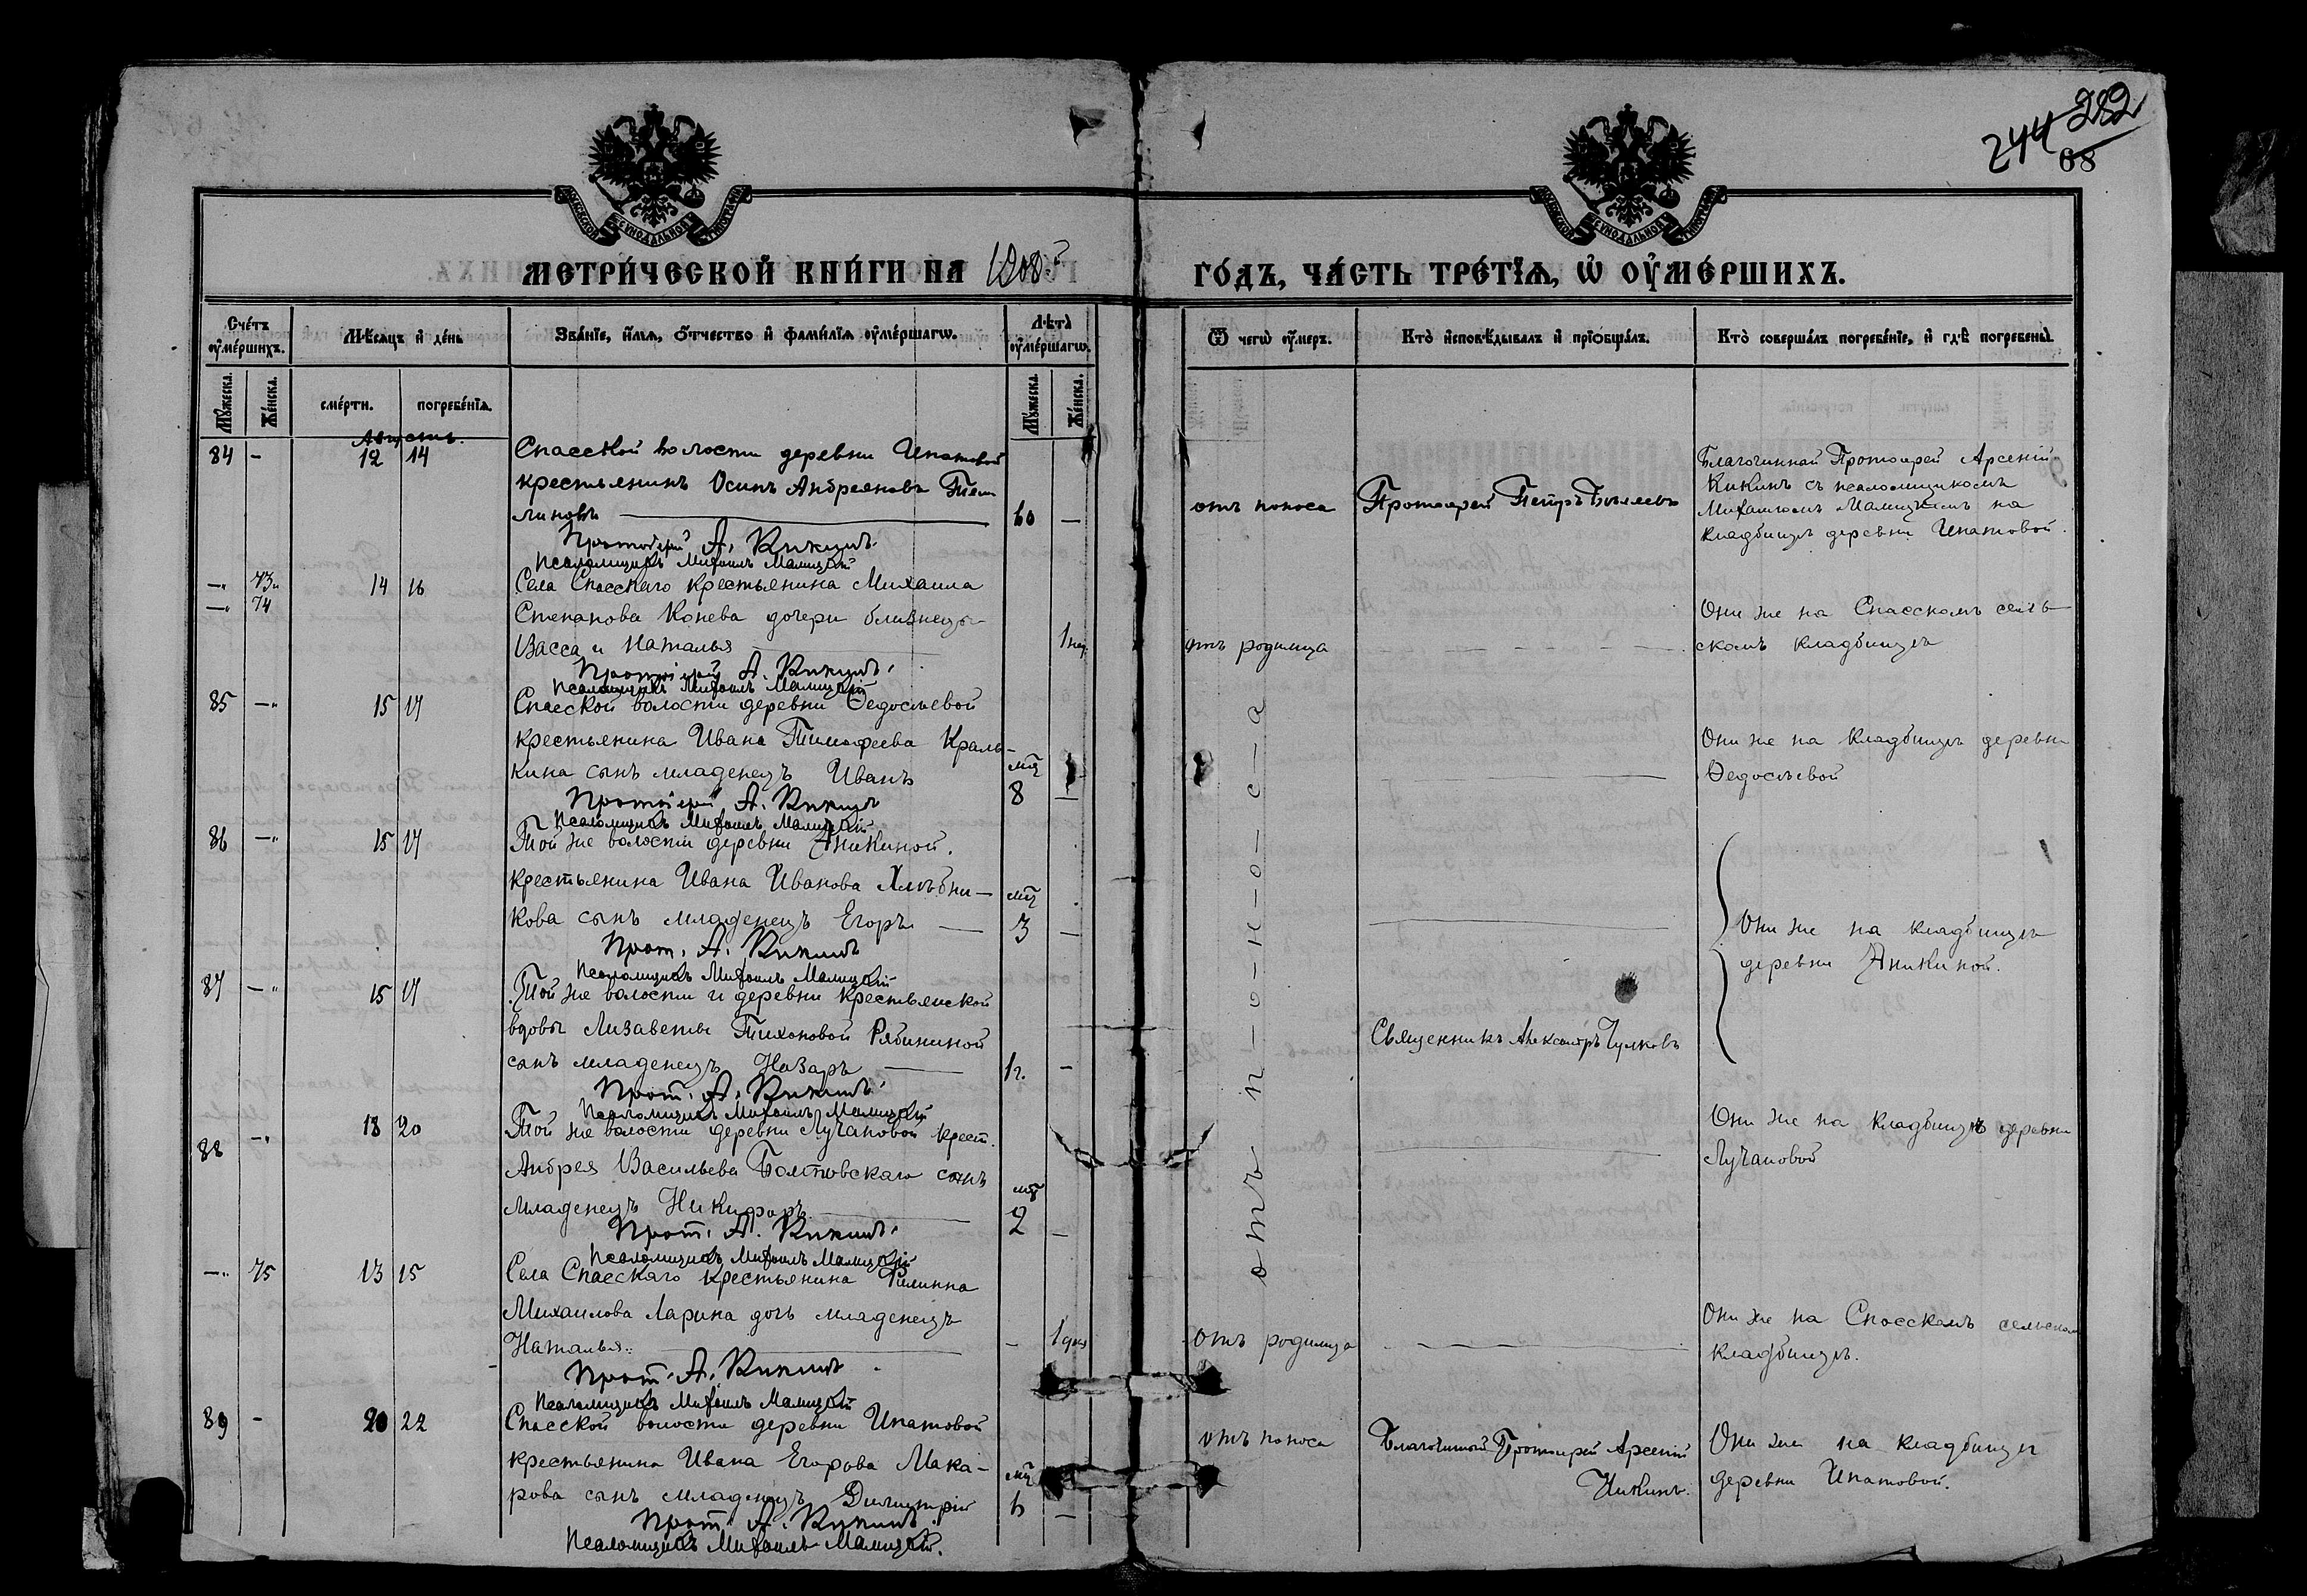 244 282
68
МОСКОВСКОЙ СѴНОДАЛЬНОЙ ТИПОГРАФІИ
МОСКОВСКОЙ СѴНОДАЛЬНОЙ ТИПОГРАФІИ
МЕТРИ́ЧЕСКОЙ КНИ́ГИ НА 1908 г.
ГО́ДЪ, ЧА́СТЬ ТРЕ́ТІѦ, Ѡ҆ ОУ҆МЕ́РШИХЪ.
Сче́тъ оу҆ме́ршихъ.
Мѣ́сѧцъ и҆ де́нь
Зва́нїе, и҆́мѧ, ѻ҆́тчество и҆ фами́лїѧ оу҆ме́ршагѡ.
Лѣ̀та оу҆ме́ршагѡ.
Ѿ чегѡ̀ оу҆́меръ.
Кто̀ и҆сповѣ́дывалъ и҆ прїѻбща́лъ.
Кто̀ соверша́лъ погребе́нїе, и҆ гдѣ̀ погребены̀.
Мꙋ́жеска. Же́нска.
сме́рти. погребе́нїѧ.
Мꙋ́жеска. Же́нска.
Августъ.
84 - 12 14 Спасской волости деревни Ипатовой
крестьянинъ Осипъ Андреяновъ
линовъ 60 —
Протоіерей А. Кикинъ
Псаломщикъ Михаилъ Малицкій
отъ поноса
Протоіерей Петръ Бѣляевъ
Благочинный Протоіерей Арсеній
Кикинъ съ псаломщикомъ
Михаиломъ Малицкимъ на
кладбищѣ деревни Ипатовой.
—„ 73„ 14 16 Села Спасскаго крестьянина Михаила
—„ 74 Степанова Конева дочери близнецы
Васса и Наталья 1 нед.
Протоіерей А. Кикинъ
Псаломщикъ Михаилъ Малицкій
отъ родимца
Они же на Спасскомъ сель-
скомъ кладбищѣ
85 —„ 15 17 Спасской волости деревни Ѳедосѣевой
крестьянина Ивана Тимофеева Краль-
кина сынъ младенецъ Иванъ мц 8 —
Протоіерей А. Кикинъ
Псаломщикъ Михаилъ Малицкій
Они же на кладбищѣ деревни
Ѳедосѣевой
86 —„ 15 17 Той же волости деревни Аникиной.
крестьянина Ивана Иванова Хлѣбни-
кова сынъ младенецъ Егоръ мц 3 —
Прот. А. Кикинъ
Псаломщикъ Михаилъ Малицкій
Они же на кладбищѣ
деревни Аникиной.
87 —„ 15 17 Той же волости и деревни крестьянской
вдовы Лизаветы Тихоновой Рябининой
сынъ младенецъ Назаръ 1 г. —
Прот. А. Кикинъ
Псаломщикъ Михаилъ Малицкій
Священникъ Александръ Чулковъ
отъ п-о-н-о-с-а
88 —„ 18 20 Той же волости деревни Лучановой крест.
Андрея Васильева Болтовскаго сынъ
младенецъ Никифоръ мц 2 —
Прот. А. Кикинъ
Псаломщикъ Михаилъ Малицкій
Они же на кладбищѣ деревни
Лучановой
—„ 75 13 15 Села Спасскаго крестьянина Филиппа
Михаилова Ларина дочь младенецъ
Наталья. - 1 дня
Прот. А. Кикинъ
Псаломщикъ Михаилъ Малицкій
отъ родимца
Они же на Спасскомъ сельском
кладбищѣ.
89 - 20 22 Спасской волости деревни Ипатовой
крестьянина Ивана Егорова Мака-
рова сынъ младенецъ Димитрій мц 6 —
Прот. А. Кикинъ
Псаломщикъ Михаилъ Малицкій.
отъ поноса
Благочинный Протоіерей Арсеній
Кикинъ.
Они же на кладбищѣ
деревни Ипатовой.